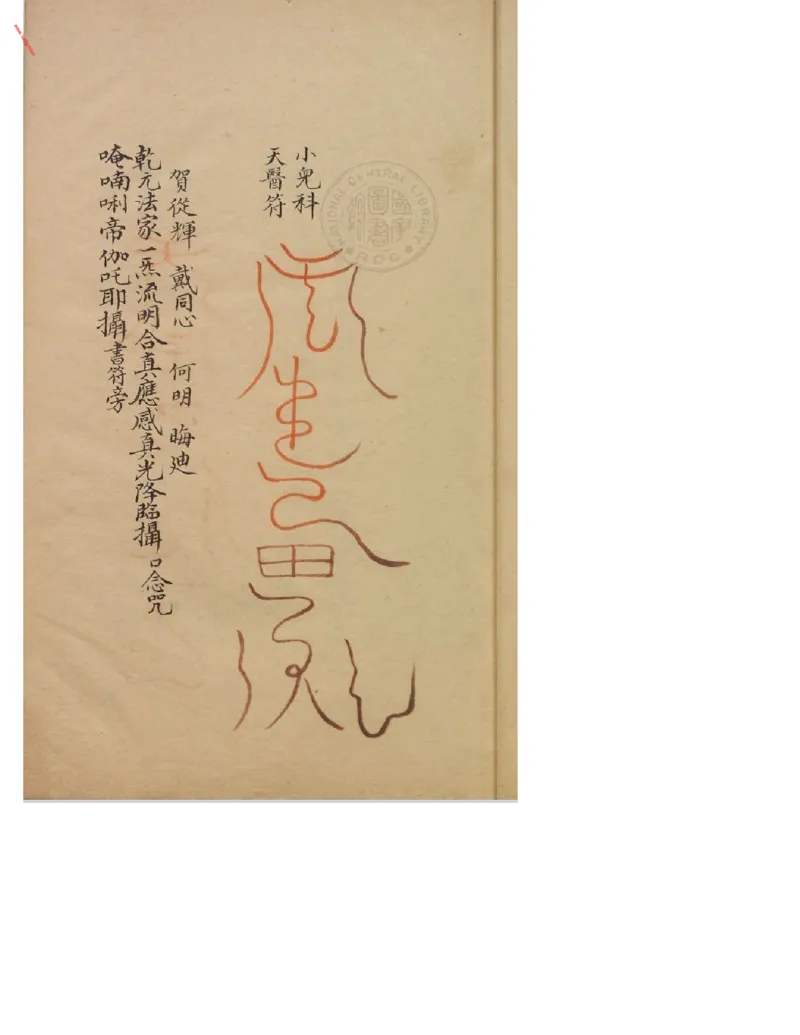 小兒科
天醫符
賀從輝 戴同心 何明 晦廸
乾元法家一炁流明合真應感真光降臨攝 口念咒
唵喃唎帝伽吒耶攝書符旁
NATIONAL CENTRAL LIBRARY
ROC
國家圖書館